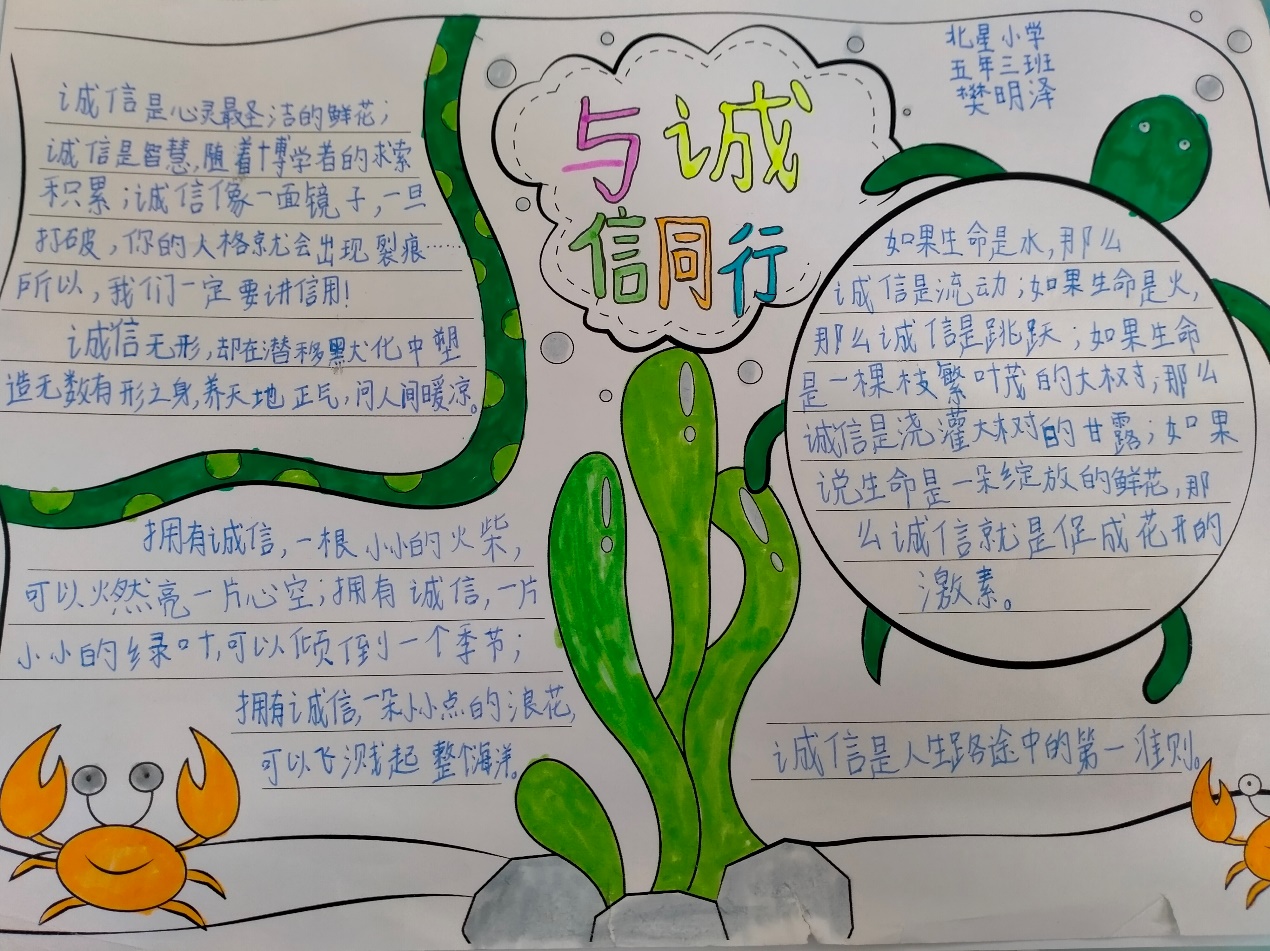 诚信是心灵最圣洁的鲜花；
诚信是智慧,随着博学者的求索
积累；诚信像一面镜子,一旦
打破,你的人格就会出现裂痕……
所以,我们一定要讲信用！
诚信无形,却在潜移默化中塑
造无数有形之身,养天地正气,问人间暖凉。
与诚
信同行
北星小学
五年三班
樊明泽
如果生命是水,那么
诚信是流动；如果生命是火,
那么诚信是跳跃；如果生命
是一棵枝繁叶茂的大树；那么
诚信是浇灌大树的甘露；如果
说生命是一朵绽放的鲜花,那
么诚信就是促成花开的
激素。
拥有诚信,一根小小的火柴,
可以燃亮一片心空；拥有诚信,一片
小小的绿叶,可以倾倒一个季节；
拥有诚信,一朵小小点的浪花,
可以飞溅起整个海洋。
诚信是人生路途中的第一准则。